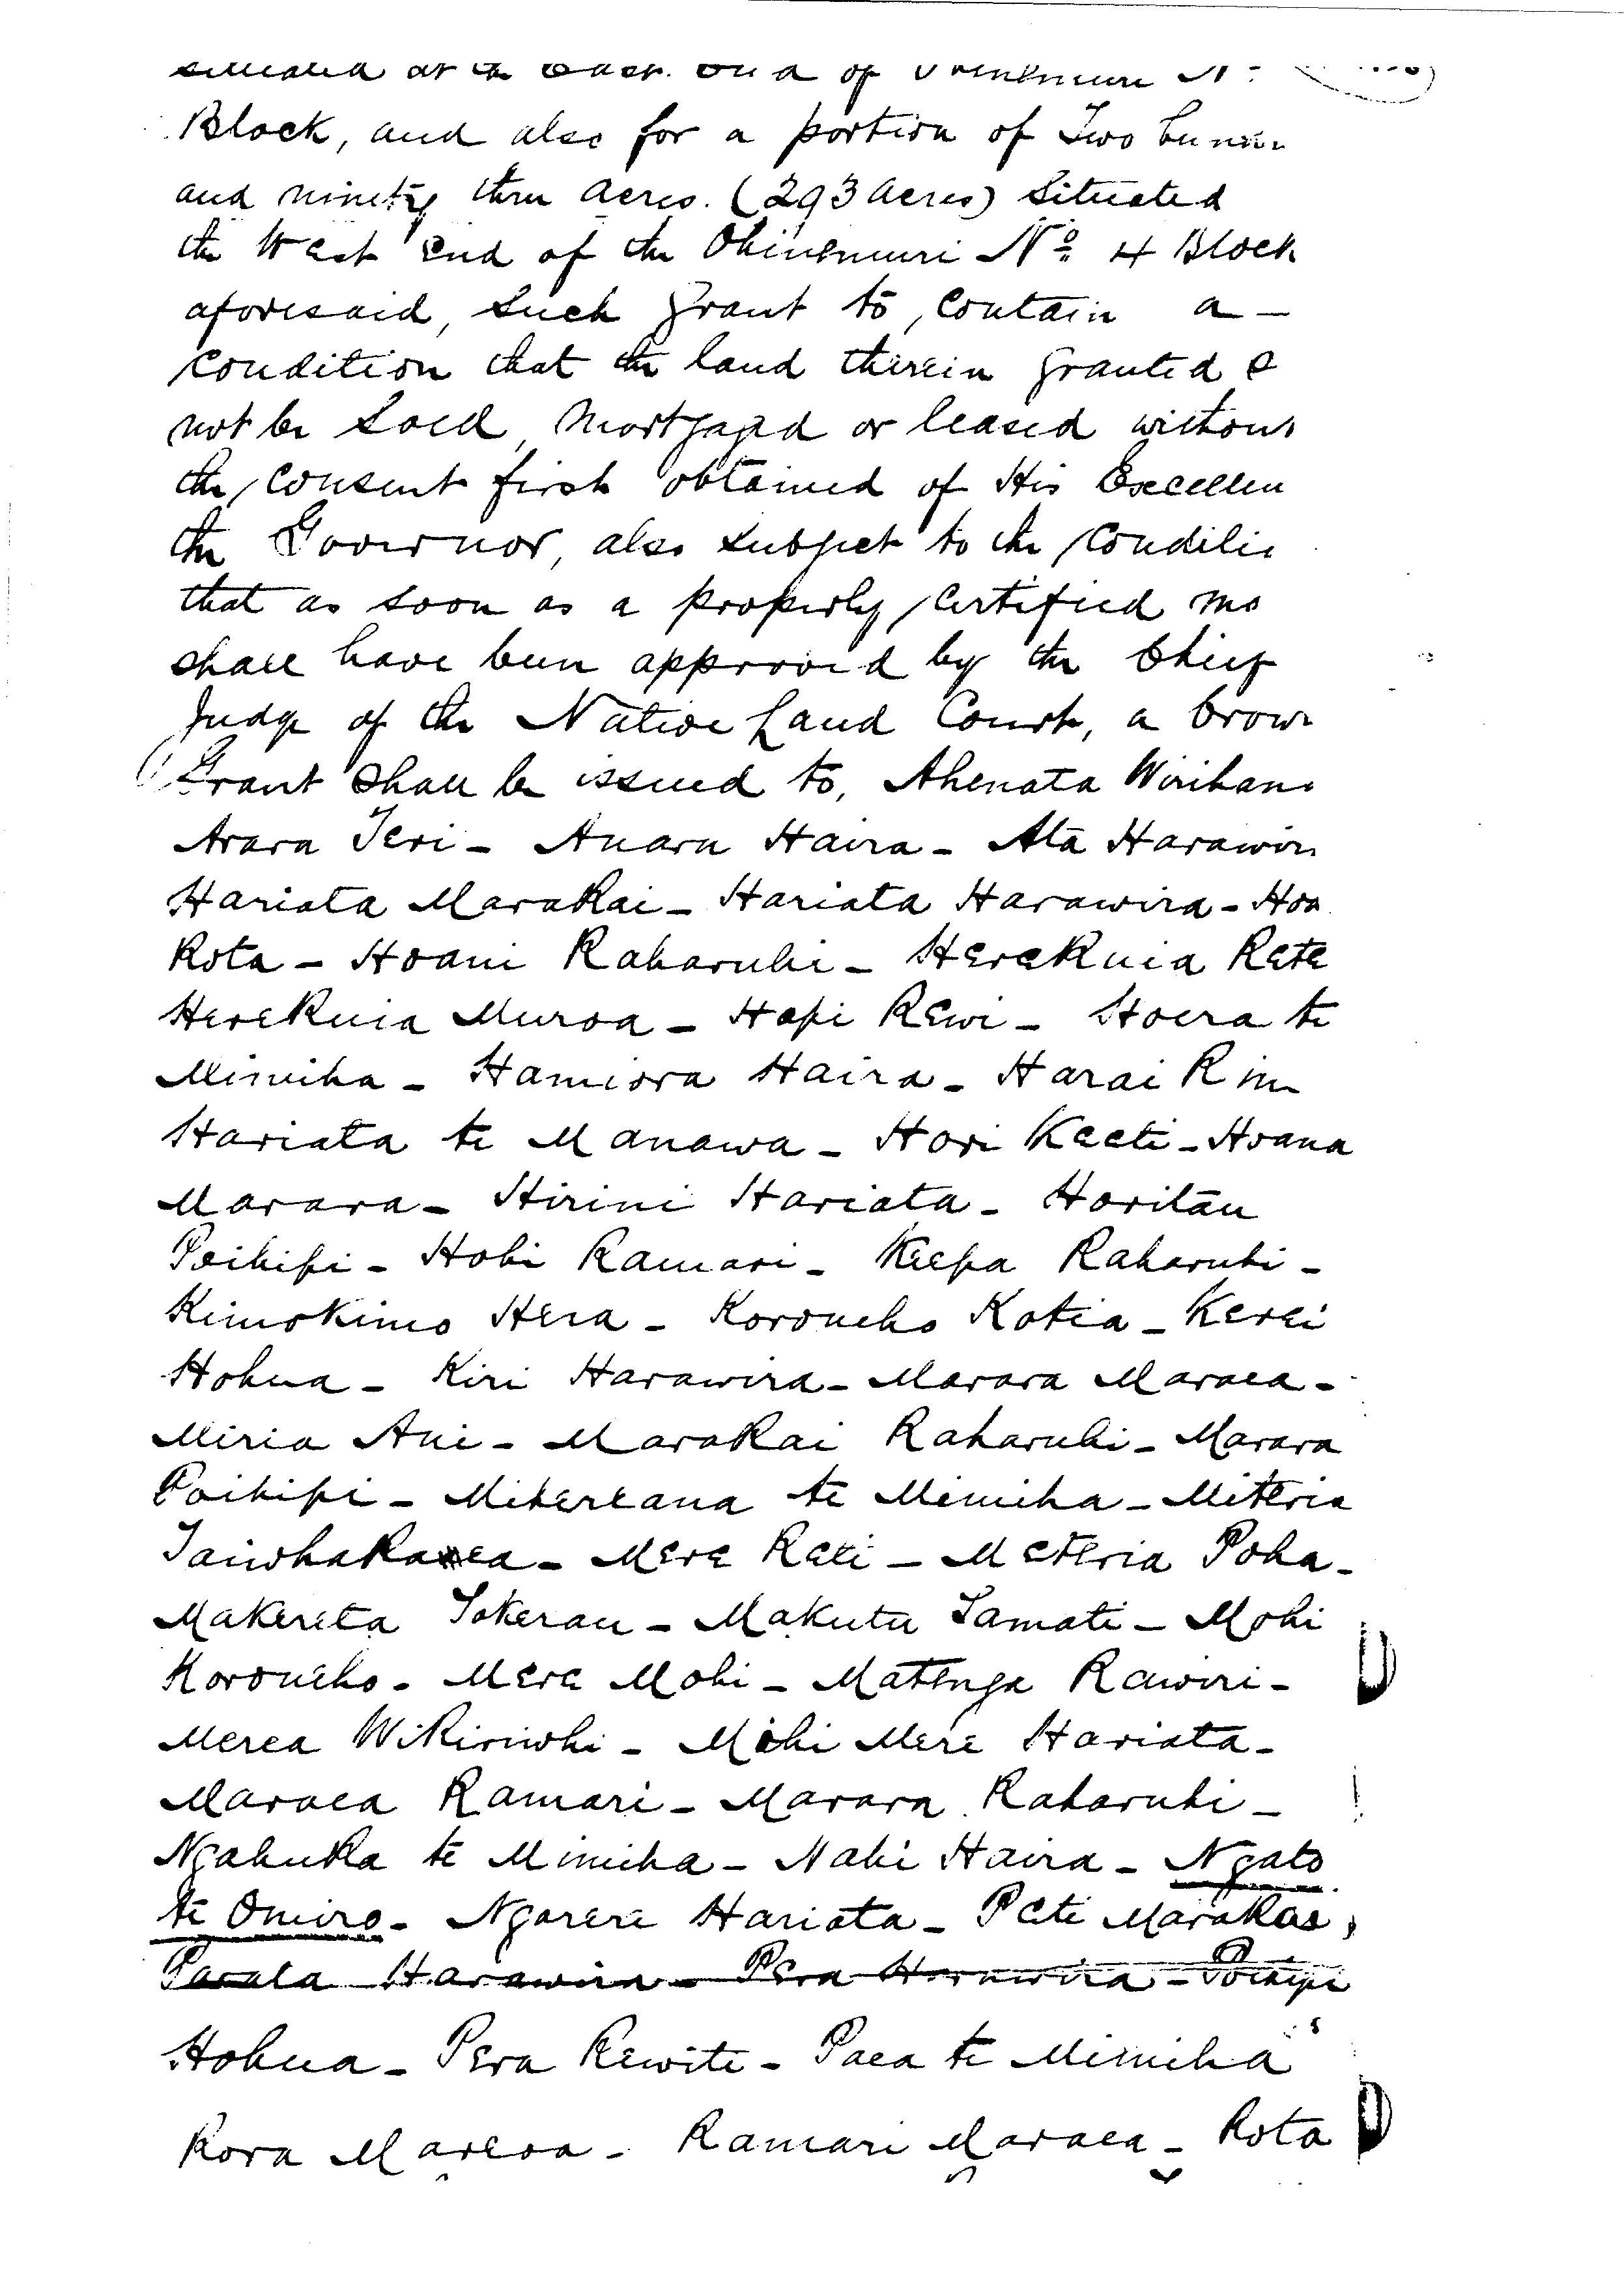 situated at the East End of Ohinemuri No
Block, and also for a portion of Two
and ninety three acres. (293 acres) Situated
the West End of the Ohinemuri No 4 Block
aforesaid, such grant to, contain a -
condition that the land therein granted
not be sold, mortgaged or leased withou
the consent first obtained of His Excellen
the Governor, also subject to the Conditi
that as soon as a properly certified
shall have been approved by the Chief
Judge of the Native Land Court, a Crow
Grant shall be issued to, Ahenata Wirihana
Arara Teri - Anaru Haira - Ata Harawir
Hariata Marakai - Hariata Harawira - Hoa
Rota - Hoani Raharuhi - Herekuia Rete
Herekuia Muroa - Hapi Rewi - Hoera te
Mimiha - Hamiora Haira - Harai
Hariata te Manawa - Hori Keeti - Hoana
Marara - Hirini Hariata - Horitau
Poihipi - Hohi Ramari - Keepa Raharuhi -
Kimokimo Hera - Koroneho Kotia - Kerei
Hohua - Kiri Harawira - Marara Maraea -
Miria Ani - Marakai Raharuhi - Marara
Poihipi - Mihereana te Mimiha - Miteria
Mere Reti - Meteria Poha -
Makereta Tokerau - Makutu Tamati - Mohi
Koroneho - Mere Mohi - Matenga Rawiri -
Merea Wikiriwhi - Mohi Mere Hariata -
Maraea Ramari - Marara Raharuhi -
Ngahuka te Mimiha - Nahi Haira - Ngato
te Omiro - Ngarere Hariata - Peti Marakai
Harawira - Pera Harawira - Poihipi
Hohua - Pera Rewite - Paea te Mimiha
Rora Mareroa - Ramari Maraea - Rota